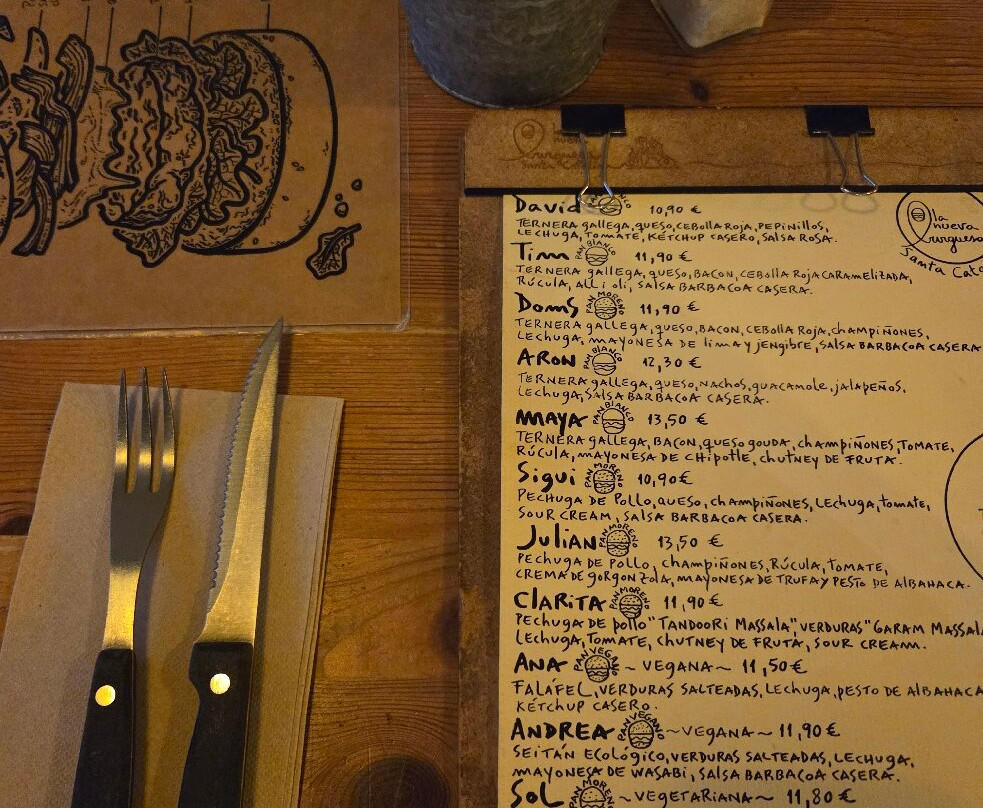 David 10,90 €
TERNERA gallega, queso, CEbolla Roja, PEPINILLOS,
LECHUGA, TOMATE, KÉTCHUP CASERO, SALSA ROSA.
Tim PAN BLANCO 11,90 €
TERNERA gallega, queso, BACON, CEBOLLA ROJA CARAMELIZADA,
RÚCULA, ALLI OLI, SALSA BARBACOA CASERA.
Doms PAN MORENO 11,90 €
TERNERA gallega, queso, BACON, CEBOLLA ROJA, CHAMPIÑONES,
Lechuga, mayonesa DE lima y jengibre, SALSA BARBACOA CASERA
ARON PAN BLANCO 12,30 €
TERNERA gallega, queso, NACHOS, guacamole, jalapeños,
LECHUGA, SALSA BARBACOA CASERA.
MAYA PAN BLANCO 13,50 €
TERNERA gallega, BACON, queso gouda, champiñones, TOMATE,
RÚCULA, MAYONESA DE CHIPOTLE, CHUTNEY DE FRUTA.
Sigui PAN MORENO 10,90 €
PECHUGA DE POLLO, QUESO, CHAMPIÑONES, LECHUGA, TOMATE,
SOUR CREAM, SALSA BARBACOA CASERA.
JULIAN PAN MORENO 13,50 €
PECHUGA DE POLLO, CHAMPIÑONES, RÚCULA, TOMATE,
CREMA DE GORGONZOLA, MAYONESA DE TRUFA Y PESTO DE ALBAHACA.
CLARITA PAN MORENO 11,90 €
PECHUGA DE pollo "TANDOORI MASSALA", VERDURAS "GARAM MASSALA
LECHUGA, TOMATE, CHUTNEY DE FRUTA, SOUR CREAM.
ANA PAN VEGANO ~ VEGANA ~ 11,50 €
FALÁFEL, VERDURAS SALTEADAS, LECHUGA, PESTO DE ALBAHACA
KÉTCHUP CASERO.
ANDREA PAN VEGANO ~ VEGANA ~ 11,90 €
SEITÁN ECOLÓGICO, VERDURAS SALTEADAS, LECHUGA,
MAYONESA DE WASABI, SALSA BARBACOA CASERA.
SOL PAN MORENO ~ VEGETARIANA ~ 11,80 €
la
nueva
burguesa
Santa Cata